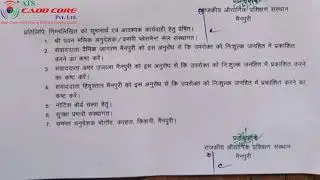 ATS
CADD CORE
PVT. LTD.
राजकीय औद्योगिक प्रशिक्षण संस्थान
मैनपुरी
प्रतिलिपि निम्नलिखित को सूचनार्थ एवं आवश्यक कार्यवाही हेतु प्रेषित।
1. श्री पवन मलिक अनुदेशक/ प्रभारी प्लेसमेन्ट सेल संस्थागत।
2. संवाददाता दैनिक जागरण मैनपुरी को इस अनुरोध से कि उपरोक्त को निःशुल्क जनहित में प्रकाशित
करने का कष्ट करें।
3. संवाददाता अमर उजाला मैनपुरी को इस अनुरोध से कि उपरोक्त को निःशुल्क जनहित में प्रकाशित
करने का कष्ट करें।
4. संवाददाता हिंदुस्तान मैनपुरी को इस अनुरोध से कि उपरोक्त को निःशुल्क जनहित में प्रकाशित करने का
कष्ट करें।
5. नोटिस बोर्ड चस्पा हेतु।
6. सुरक्षा प्रभारी संस्थागत।
7. समस्त अनुदेशक भोगाँव, करहल, किशनी, मैनपुरी।
प्रधानाचार्य
राजकीय औद्योगिक प्रशिक्षण संस्थान
मैनपुरी